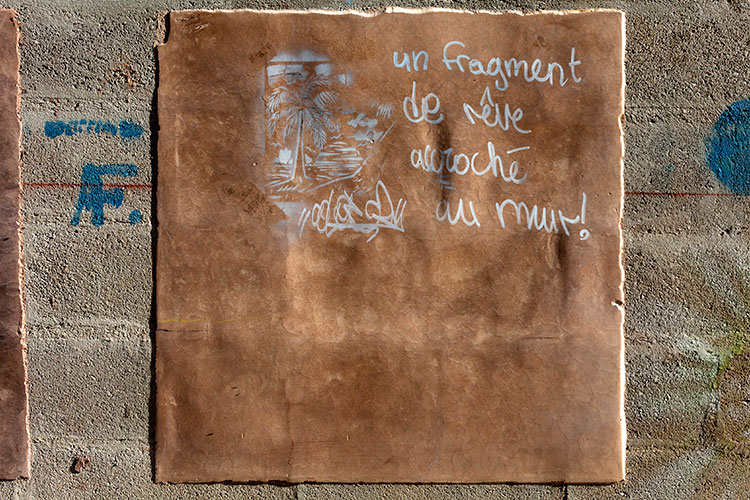 un fragment
de rêve
accroché
au mur!
F.